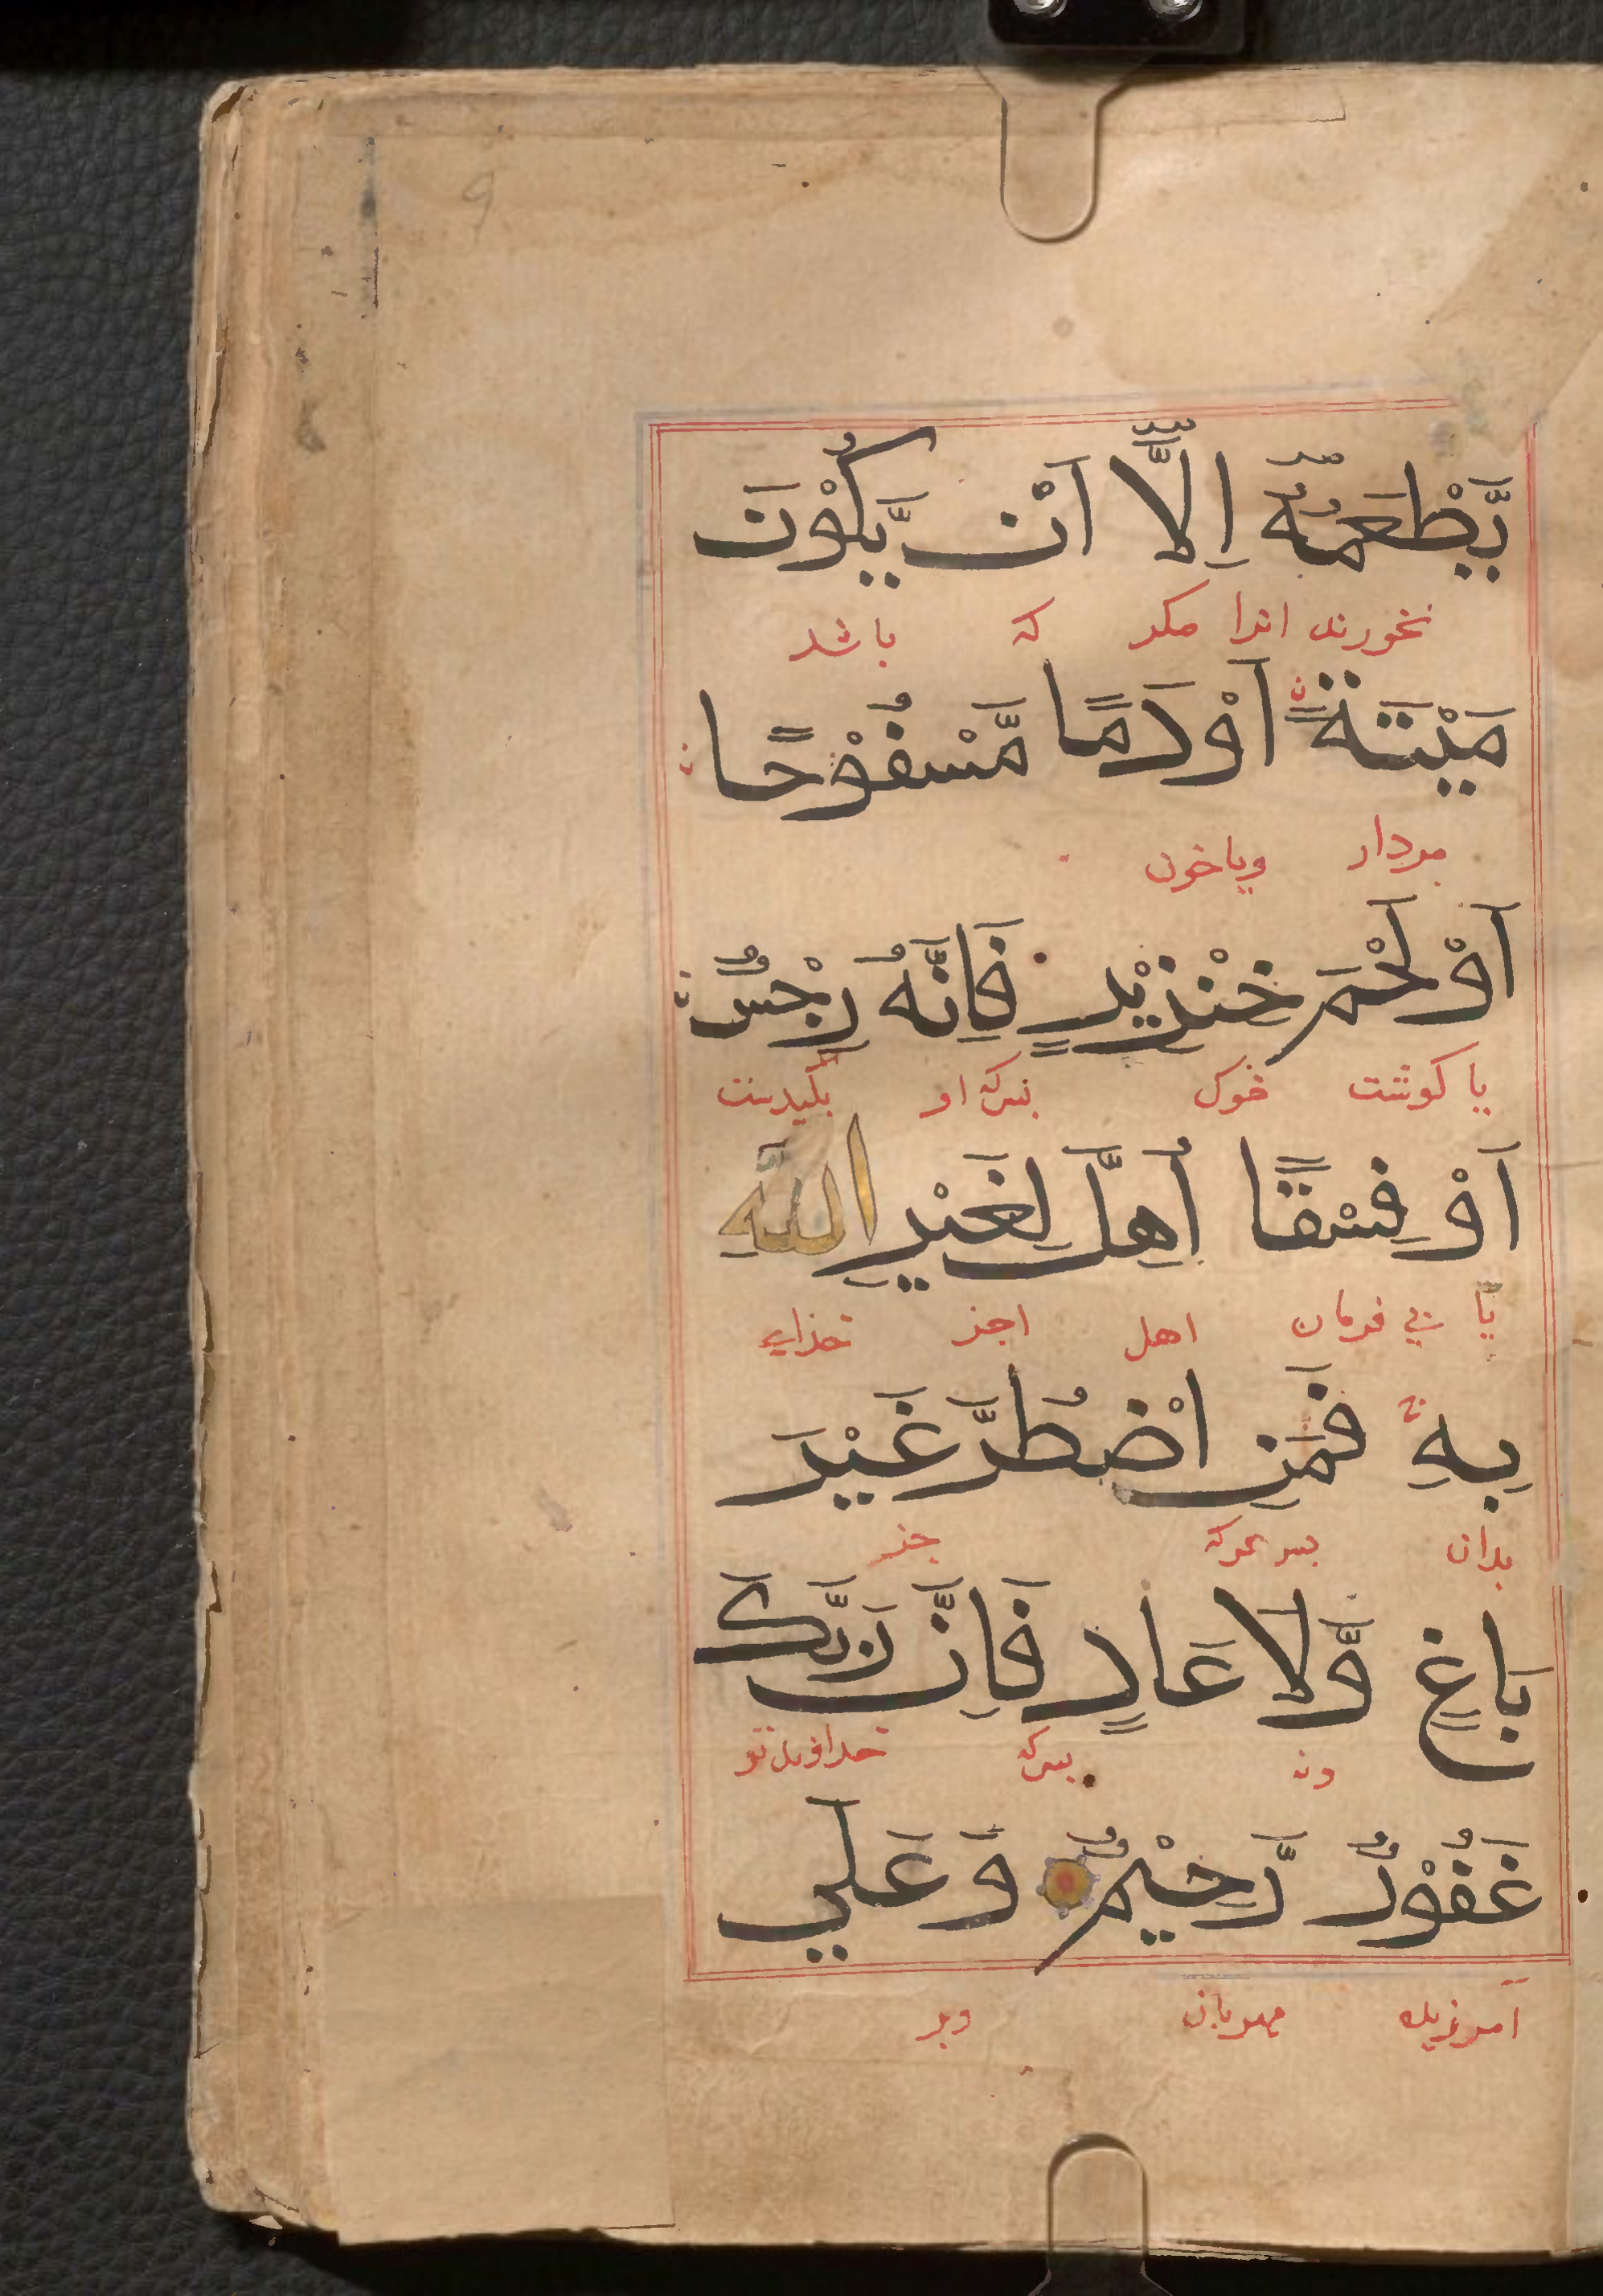 يَّطْعَمُهٗۤ اِلَّاۤ اَنْ يَّكُوْنَ
نخورند انرا مكر كه باشد
مَيْتَةً اَوْ دَمًا مَّسْفُوْحًا
مردار ويا خون
اَوْ لَحْمَ خَنْزِيْرٍ فَاِنَّهٗ رِجْسٌ
يا كوشت خوك او
اَوْ فِسْقًا اُهِلَّ لِغَيْرِ اللّٰهِ
يا بي فرمان اهل اجز خداي
بِهٖ فَمَنِ اضْطُرَّ غَيْرَ
بدان هركه جز
بَاغٍ وَّلَا عَادٍ فَاِنَّ رَبَّكَ
ونه خداوند تو
غَفُوْرٌ رَّحِيْمٌ وَعَلٰي
آمرزنده مهربان وبر